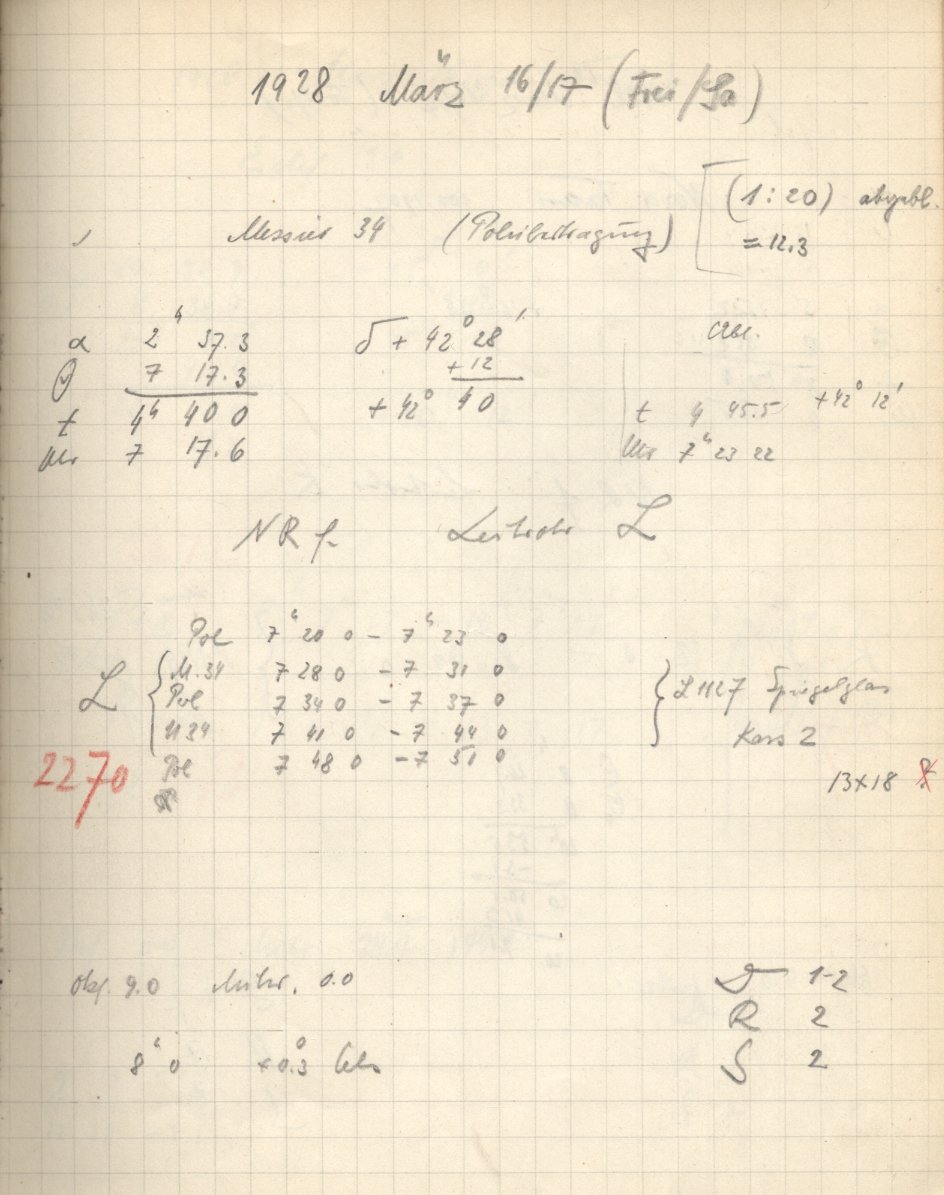 1928 März 16/17 (Frei/Sa)
Messier 34 (Polübertragung) [(1:20) abgebl.
= 12.3
α 2ʰ 37.3 δ + 42° 28' Abl.
7 17.3 + 12
t 4ʰ 40 0 + 42° 40 t 4 45.5 + 42° 12'
Uhr 7 17.6 Uhr 7ʰ 23 22
NR f. Leitrohr L
Pol 7ʰ 20 0 – 7ʰ 23 0
M.34 7 28 0 – 7 31 0
L { Pol 7 34 0 – 7 37 0 } L 1127 Spiegelglas
M34 7 41 0 – 7 44 0 Kass 2
2270 Pol 7 48 0 – 7 51 0
13×18
Okj. 9.0 Mikr. 0.0 1-2
R 2
8ʰ 0 + 0.3° Cels S 2